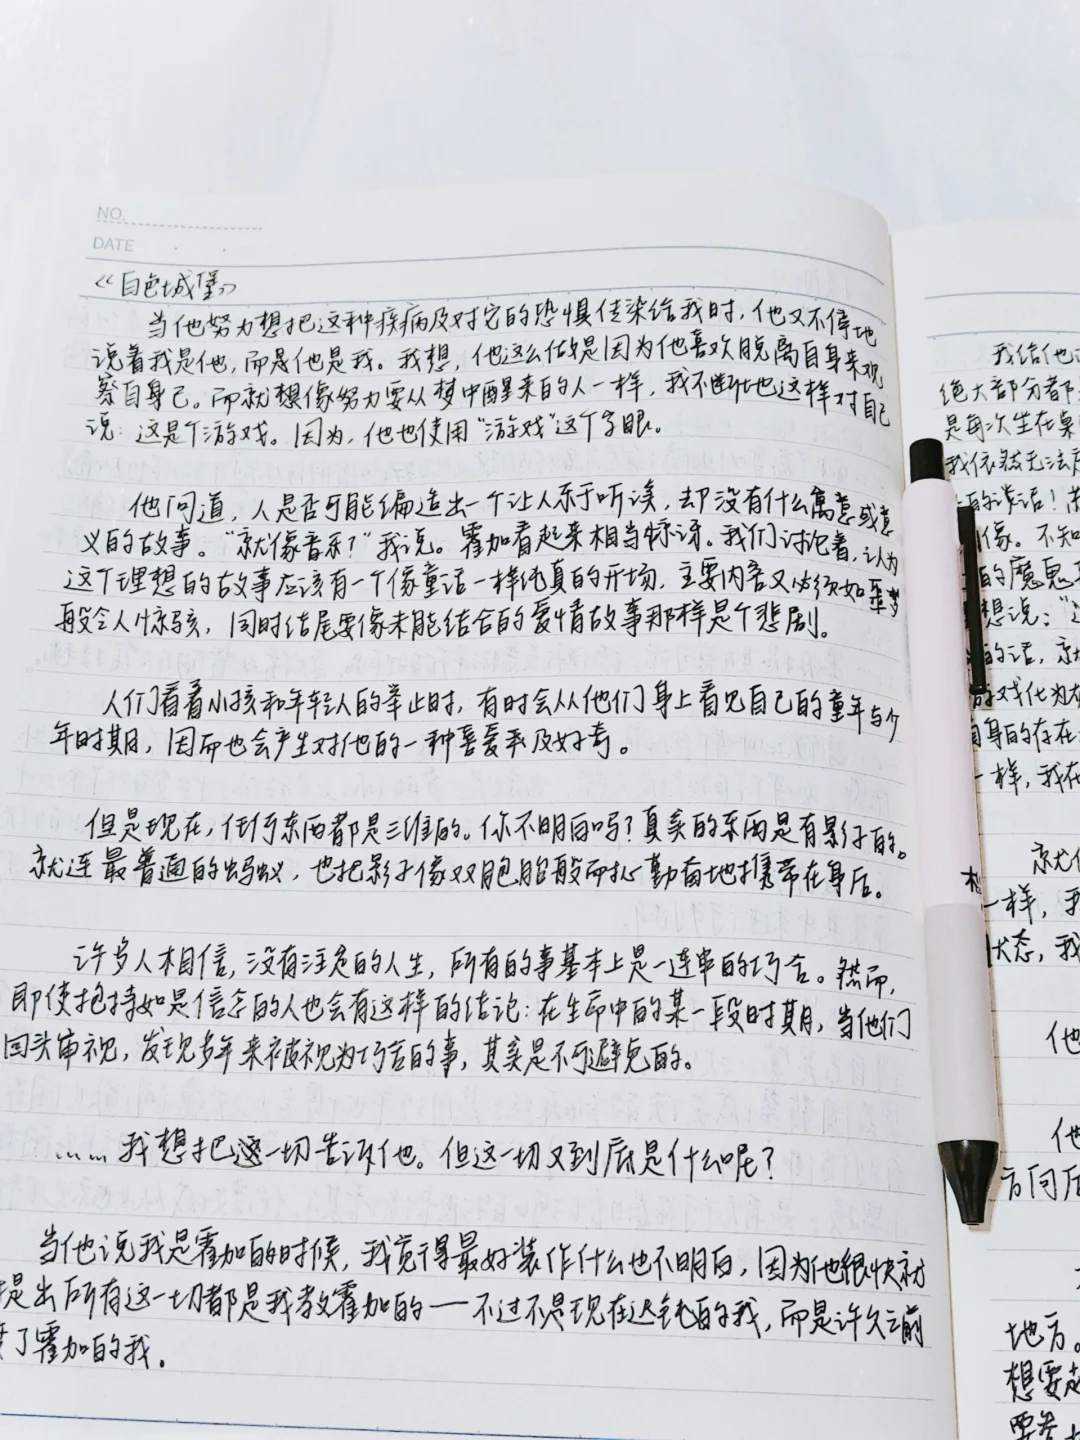 NO.
DATE
《白色城堡》
当他努力想把这种疾病及对它的恐惧传染给我时,他又不停地
说着我是他,而是他是我。我想,他这么做是因为他喜欢脱离自身来观
察自身己。而就想像努力要从梦中醒来的人一样,我不断地这样对自己
说:这是个游戏。因为,他也使用“游戏”这个字眼。
他问道,人是否可能编造出一个让人乐于听读,却没有什么寓意或意
义的故事。“就像音乐?”我说。霍加看起来相当惊讶。我们讨论着,认为
这个理想的故事应该有一个像童话一样纯真的开场,主要内容又必须如噩梦
般令人惊骇,同时结尾要像未能结合的爱情故事那样是个悲剧。
人们看着小孩和年轻人的举止时,有时会从他们身上看见自己的童年与少
年时期,因而也会产生对他的一种喜爱和及好奇。
但是现在,任何东西都是三维的。你不明白吗?真实的东西是有影子的。
就连最普通的蚂蚁,也把影子像双胞胎般而扛勤奋地携带在身后。
许多人相信,没有注定的人生,所有的事基本上是一连串的巧合。然而,
即使抱持如是信念的人也会有这样的结论:在生命中的某一段时期,当他们
回头审视,发现多年来被视为巧合的事,其实是不可避免的。
……我想把这一切告诉他。但这一切又到底是什么呢?
当他说我是霍加的时候,我觉得最好装作什么也不明白,因为他很快就
提出所有这一切都是我教霍加的——不过不是现在迟钝的我,而是许久之前
了霍加的我。
我给他
绝大部分都
是每次坐在桌
我依然无法
的谈话!
像。不知
的魔鬼
想说:“
的话,就
游戏化为
自身的存在
一样,我在
就
一样,我
状态,我
他
他
方向后
地方。
想要
要